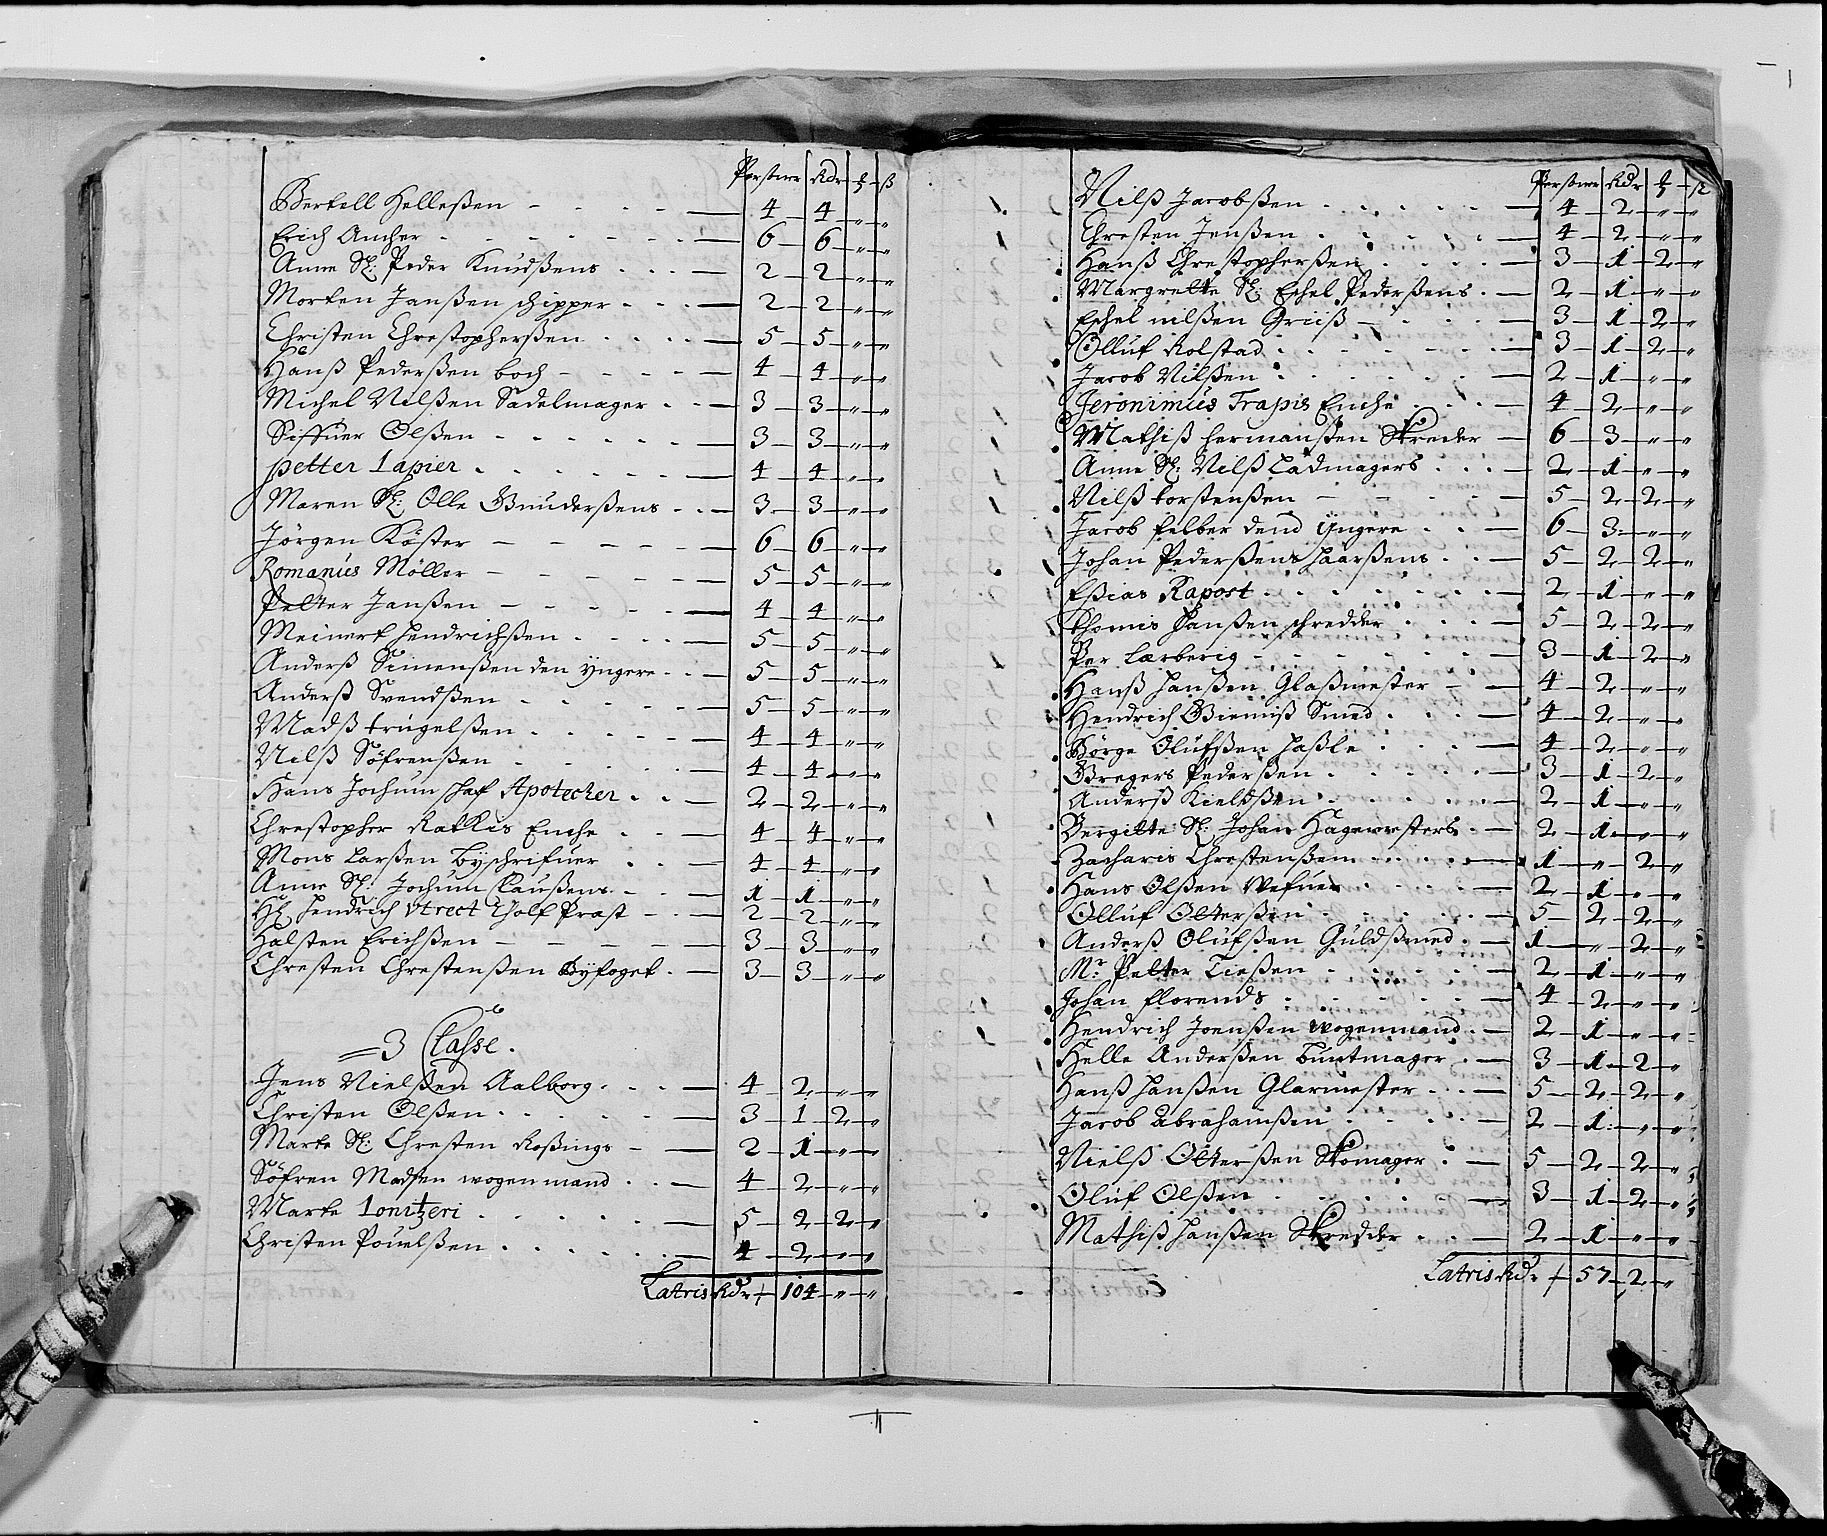 Personer Rdr ß
Bertell Helleßen 4 4 " "
Erich Ancher 6 6 " "
Anne Sl: Peder Knudßens 2 2 " "
Morten Janßen schipper 2 2 " "
Christen Chrestopherßen 5 5 " "
Hanß Pederßen boch 4 4 " "
Michel Nilßen Sadelmager 3 3 " "
Siffuer Olßen 3 3 " "
petter lapier 4 4 " "
Maren Sl: Olle Gunderßens 3 3 " "
Jörgen Köster 6 6 " "
Romanus Möller 5 5 " "
Petter Janßen 4 4 " "
Meinert Hendrichßen 5 5 " "
Anderß Simenßen den yngere 5 5 " "
Anderß Svendßen 5 5 " "
Madß trugelßen 4 4 " "
Nilß Söfrenßen 4 4 " "
Hans Jochum Apotecher 2 2 " "
Chrestopher Ratkis Enche 4 4 " "
Mons Larßen Byschrifuer 4 4 " "
Anne Sl: Jochum Claußens 1 1 " "
Hendrich Vtrect Tholf Præst 2 2 " "
Halsten Erichßen 3 3 " "
Chresten Chrestenßen Byfoget 3 3 " "
3 Classe.
Jens Nielßen Aalborg 4 2 " "
Christen Olßen 3 1 2 "
Marte Sl: Chresten Roßings 2 1 " "
Söfren Madsen wogenmand 4 2 " "
Marte lonitzeri 5 2 2 "
Christen Pouelßen 4 2 " "
Latris Rdr 104 " "
Personer Rdr ß
Nilß Jacobßen 4 2 " "
Chresten Jenßen 4 2 " "
Hanß Chrestopherßen 3 1 2 "
Margrette Sl: Eschel Pederßens 2 1 " "
Eschel nilßen Griiß 3 1 2 "
Olluf Rolstad 3 1 2 "
Jacob Nilßen 2 1 " "
Jeronimus Trapis Enche 4 2 " "
Mathiß hermanßen Skreder 6 3 " "
Anne Sl: Nilß Ladmagers 2 1 " "
Nilß torstenßen 5 2 2 "
Jacob felber dend yngere 6 3 " "
Johan Pederßens Haarßens 5 2 2 "
Eßias Rapost 2 1 " "
thomis Hanßen schredder 5 2 2 "
Per Lærberig 3 1 2 "
Hanß Hanßen Glaßmester 4 2 " "
Hendrich Smed 4 2 " "
Börge Olufßen Haßle 4 2 " "
Gregers Pederßen 3 1 2 "
Anderß Kieldßen 2 1 " "
Bergitte Sl: Johan Hagemesters 2 1 " "
Zacharis Chrestenßen 1 " 2 "
Hans Olßen Wefuer 2 1 " "
Olluf Otterßen 5 2 2 "
Anderß Olufßen Guldßmed 1 " 2 "
Mr: Petter Tießen 2 1 " "
Johan florends 4 2 " "
Hendrich Joenßen wogenmand 2 1 " "
Helle Anderßen Buntmager 3 1 2 "
Hanß Hanßen Glarmester 5 2 2 "
Jacob Abrahamßen 2 1 " "
Nielß Otterßen Skomager 5 2 2 "
Oluf Olßen 3 1 2 "
Mathiß Hanßen Skredder 2 1 " "
Latris Rdr 57 2 "